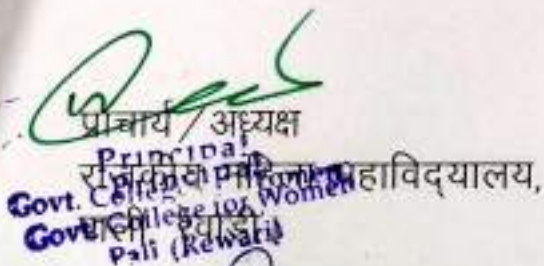 प्राचार्य / अध्यक्ष
Principal
राजकीय महिला महाविद्यालय,
Govt. College for Women
पाली (रेवाड़ी)
Govt. College for Women
Pali (Rewari)